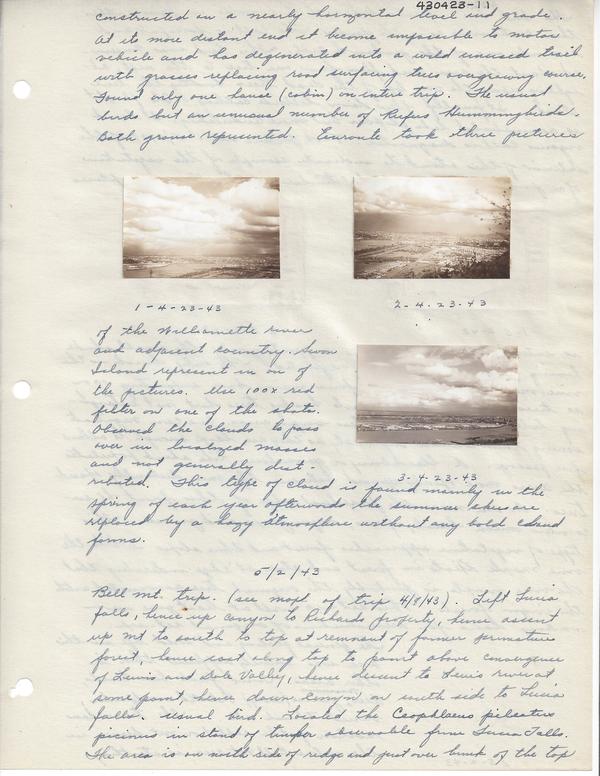 430423-11
constructed on a nearly horizontal level and grade.
At its more distant end it become impossible to motor
vehicle and has degenerated into a wild unused trail
with grasses replacing road surfacing trees overgrowing course.
Found only one house (cabin) on entire trip. The usual
birds but an unusual number of Rufus Hummingbirds.
Both grouse represented. Enroute took three pictures
1-4-23-43
2-4-23-43
of the Williamette river
and adjacent country. Swan
Island represent in on of
the pictures. Use 100x red
filter on one of the shots.
Observed the clouds to pass
over in localized masses
and not generally dist-
3-4-23-43
ributed. This type of cloud is found mainly in the
spring of each year afterwards the summer skies are
replaced by a hazy atmosphere without any bold cloud
forms.
5/2/43
Bell Mt. trip. (see map of trip 4/9/43). Left Lucia
falls, hence up canyon to Richards property, hence ascent
up mt to south to top at remnant of former premature
forest, hence east along top to point above convergence
of Lewis and Dole Valley, hence descent to Lewis river at
same point, hence down canyon on south side to Lucia
falls. Usual bird. Located the Ceophlaeus pileatus
picinus in stand of timber observable from Lucia Falls.
The area is on north side of ridge and just over bunk of the top